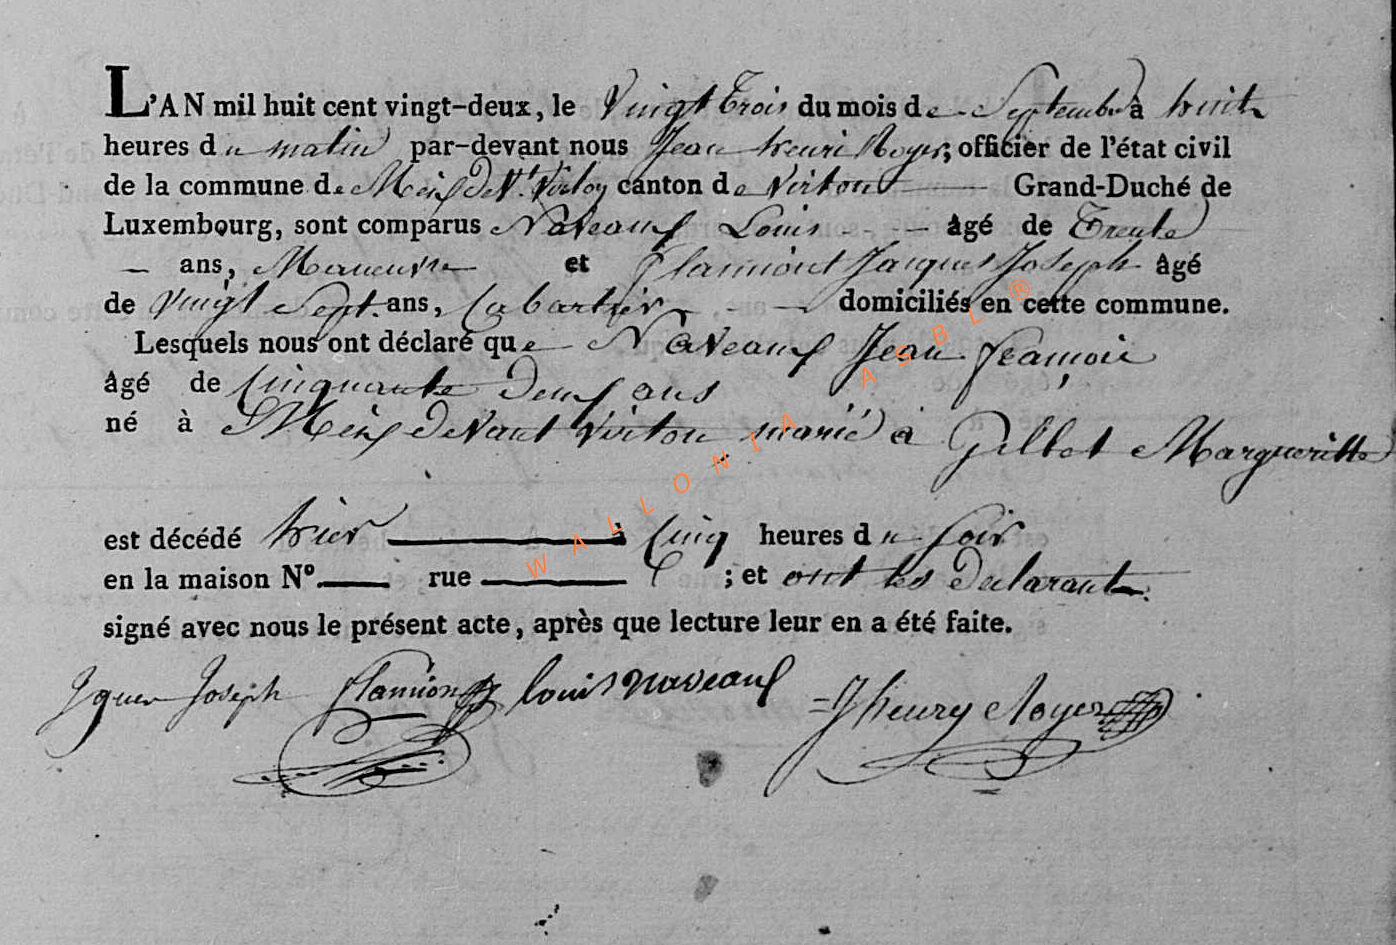 L'AN mil huit cent vingt-deux, le Vingt Trois du mois de Septembre à huit
heures du matin par-devant nous Jean henri Royer, officier de l'état civil
de la commune de Meix devt Virton canton de Virton Grand-Duché de
Luxembourg, sont comparus Naveaux Louis âgé de Trente
ans, Maneuvre et flamiont Jacques Joseph âgé
de Vingt Sept ans, Cabartier domiciliés en cette commune.
Lesquels nous ont déclaré que Naveaux Jean françois
âgé de Cinquante Deux ans
né à Meix Devant Virton marié à Gillet Margueritte
est décédé hier à Cinq heures du soir
en la maison N° rue ; et ont les Declarants
signé avec nous le présent acte, après que lecture leur en a été faite.
Joseph flamion louis naveaux Jhenry Royer
WALLONIA ASBL ®